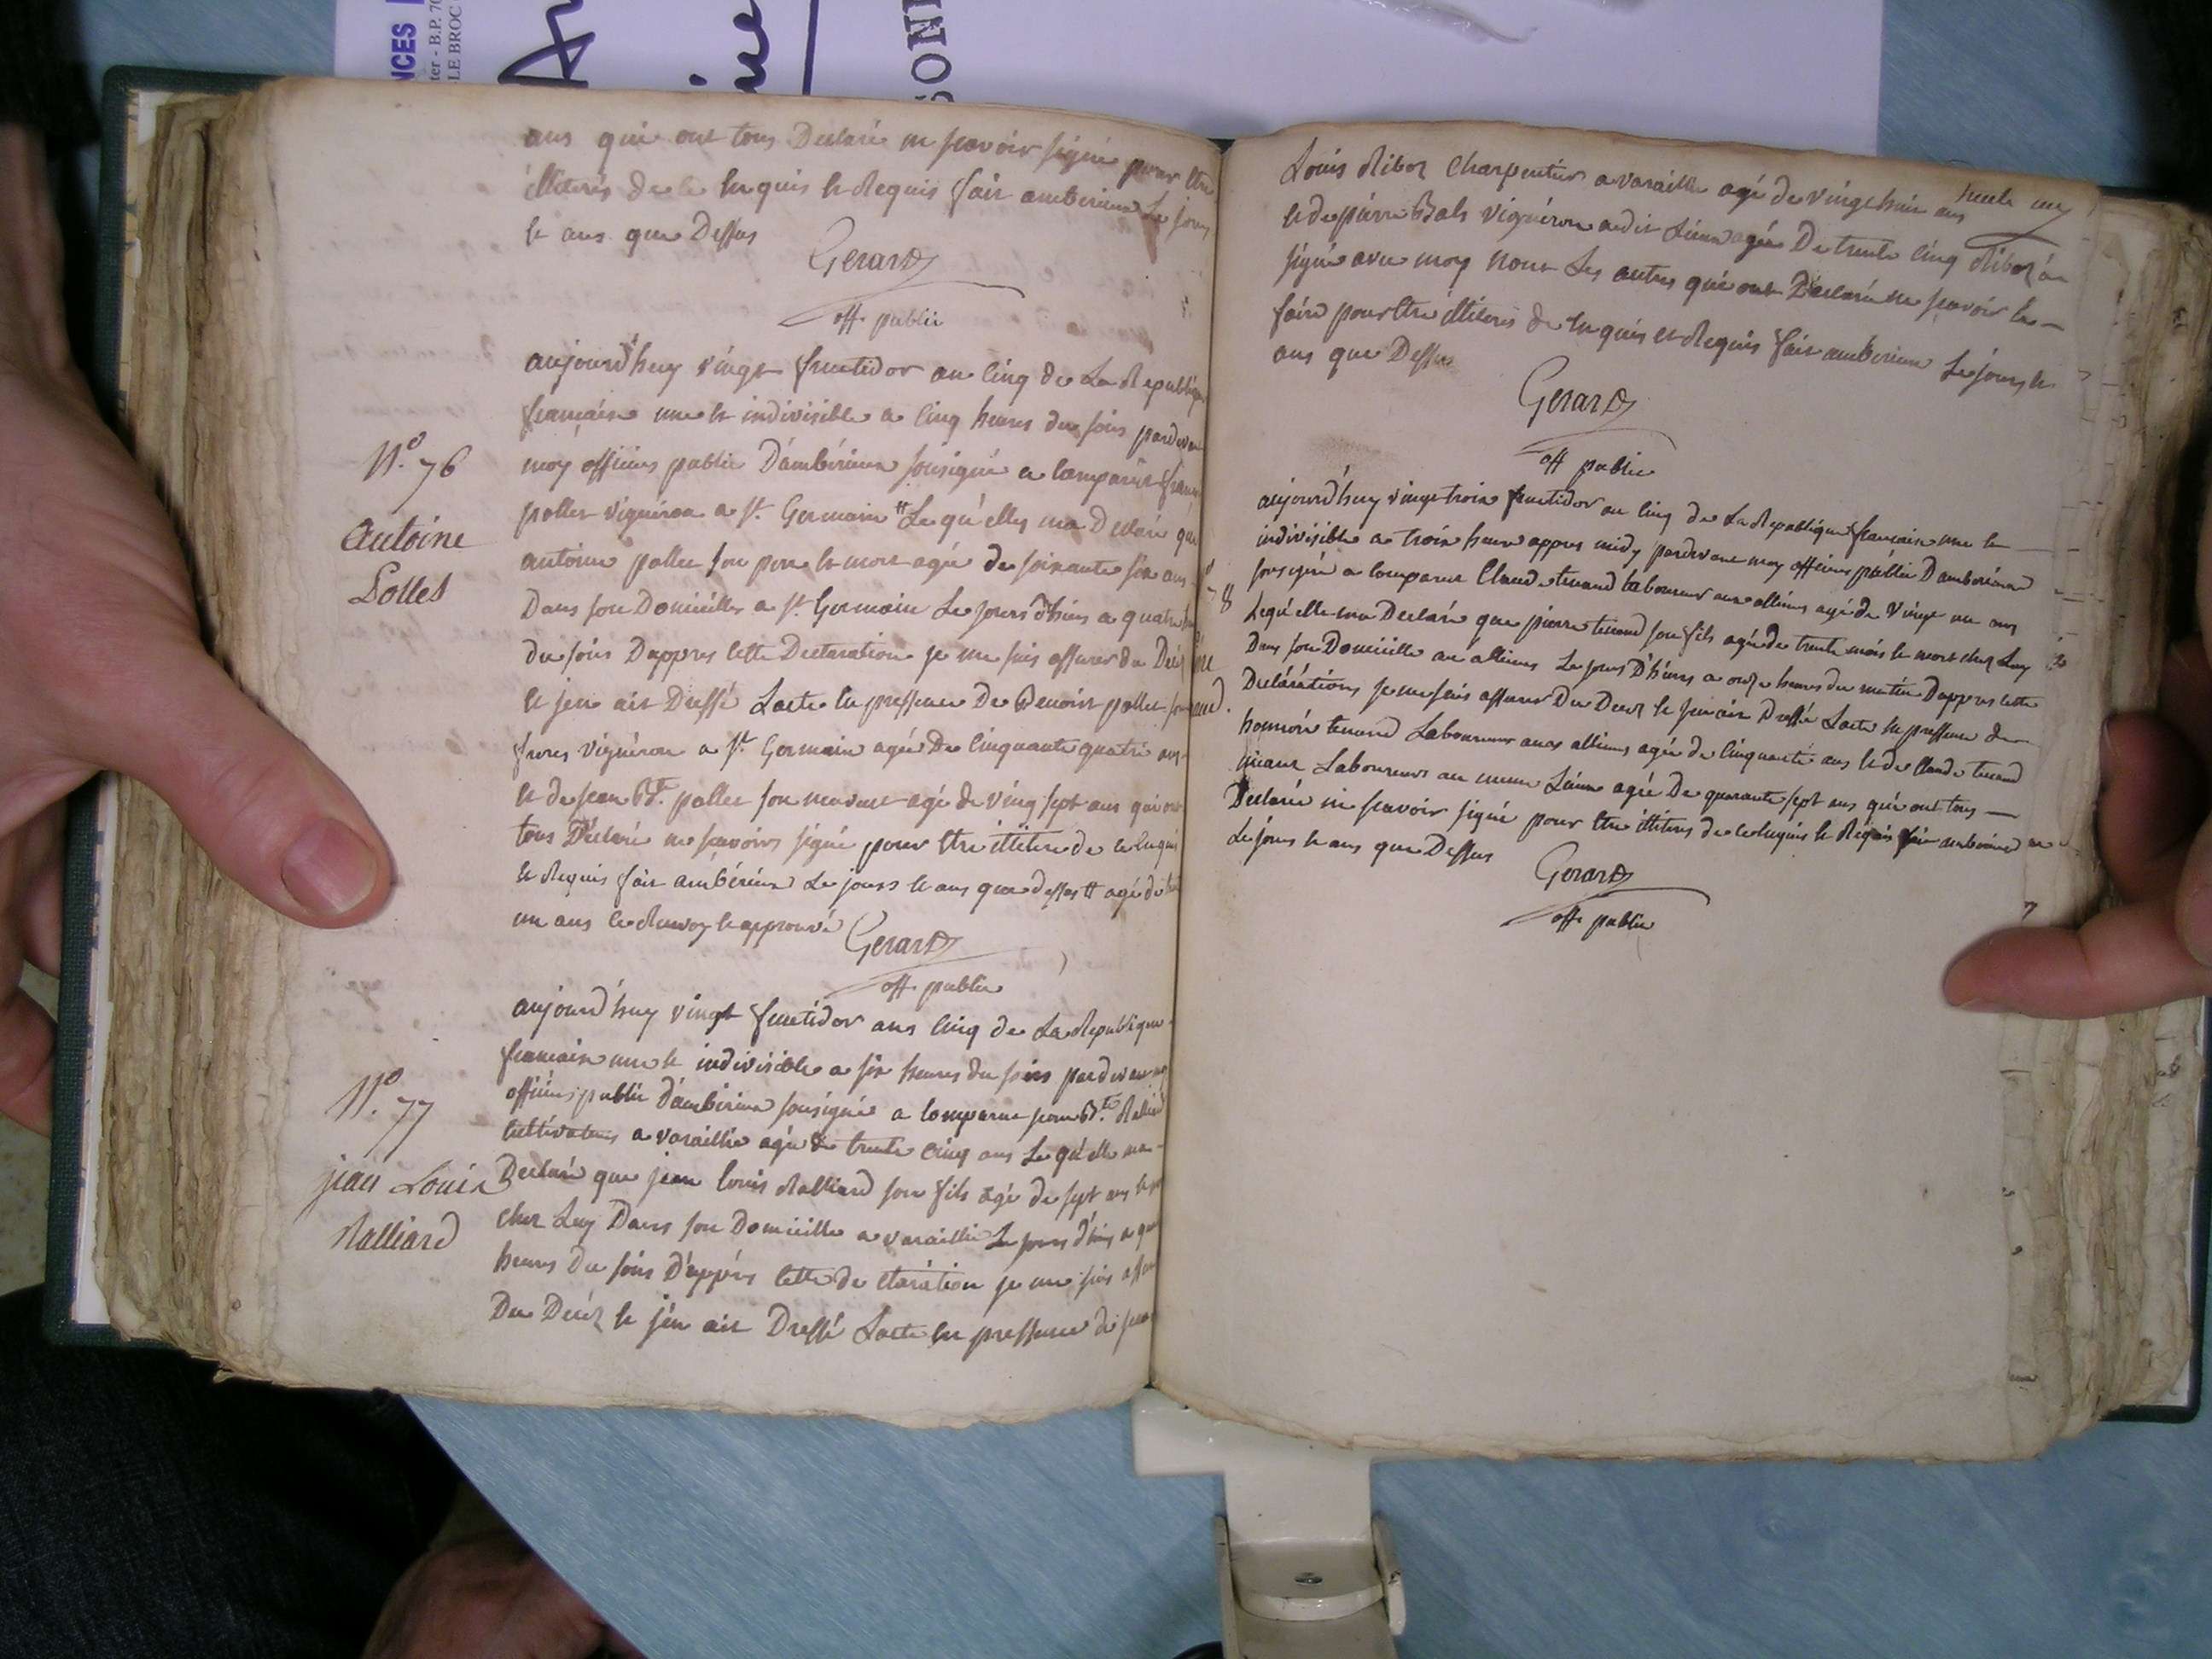 NCES
ter - B.P. 70
LE BROC
SON
ans qui ont tous Declaré ne scavoir signé pour etre
illiterés de le enquis et Requis fait amberieux Le jours
et ans que Dessus
Gerard
off. public
aujourd'huy vingt fructidor an cinq de La Republique
francaise une et indivisible a cinq heures du soirs pardevan
N.o 76
Antoine
Pollet
moy officiers public D'ambérieux sousigné a comparut
pollet vigneron a St. Germain # Le qu'elles ma Declaré que
antoine pollet son pere et mort agé de soixante six ans
Dans son Domicilles a St. Germain Le jours d'hiers a quatre
du soirs Dappres cette Declaration je me suis assurer du Decéz
et jen ait Dressé Lacte en pressence De Benoist pollet son
freres vignéron a St. Germain agé De cinquante quatre ans
et de jean Bte. pollet son agé de ving sept ans qui ont
tous Déclaré ne scavoirs signé pour etre illitere de ce enquis
et Requis fait ambérieux Le jours et ans que dessus # agé de
un ans le Renvoy et approuvé
Gerard
off. public
aujourd'huy vingt fructidor ans cinq de La Republique
francaise une et indivisible a six heures du soirs pardevan
N.o 77
jean Louis
Ralliard
officiers public d'ambérieux sousigné a comparut jean Bte. Ralliard
cultivateurs a varaillie agé de trente cinq ans Le qu'elle ma
Declaré que jean louis Ralliard son fils agé de sept ans
chez Luy Dans son Domicille a varaillie Le jours d'hiers a
heures Du soirs D'apprés cette declaration je me suis
Du Decéz et jén ait Dressé Lacte en pressence de
Louis Riboz charpentier a varaille agé de vingt huit ans
et de pierre Bals vignéron audit Lieux agé De trente cinq Riboz a
signé avec moy nont Les autres qui ont Déclaré ne scavoir le
faire pour etre illiterés de enquis et Requis fait amberieux Le jours et
ans que Dessus
Gerard
off public
78
aujourd'huy vingt trois fructidor an cinq de La Republique francaise une et
indivisible a trois heure appres midy pardevant moy officiers public Damberieux
sousigné a comparut Claude tenand laboureur aux allimes agé de vingt un ans
Lequ'elle ma Declaré que pierre tenand son fils agé de trente mois et mort chez Luy
Dans son Domicille au allimes Le jours D'hiers a onze heures du matin Dappres cette
Déclárations je me suis assurer Du Decez et jen ait Dressé Lacte en pressence de
honnoré tenand Laboureurs aux allimes agé de cinquante ans et de claude tenand
Laboureurs au meme Lieux agé De quarante sept ans qui ont tous
Declaré ne scavoir signé pour etre illiteres de ce enquis et Requis fait amberieux
Le jours et ans que Dessus
Gerard
off. public